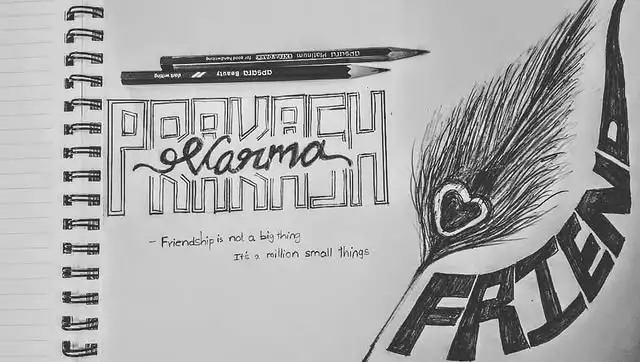 apsara Platinum EXTRA DARK for good handwriting
apsara Beauty dark writing
PRAKASH
Varma
- Friendship is not a big thing
It's a million small things
FRIEND